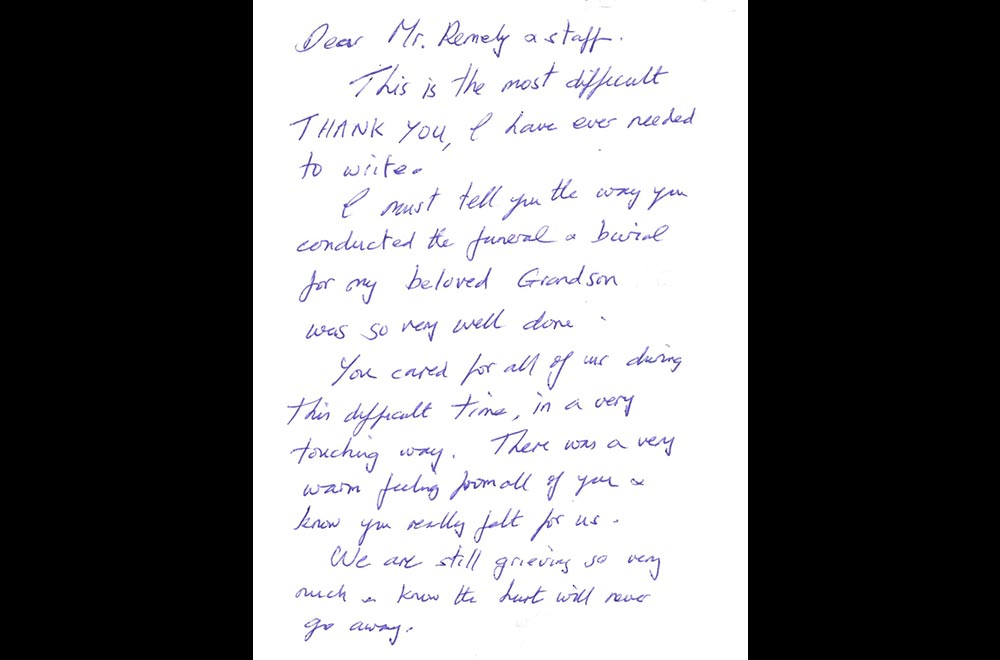 Dear Mr. Remely & staff.
This is the most difficult
THANK YOU, I have ever needed
to write.
I must tell you the way you
conducted the funeral & burial
for my beloved Grandson
was so very well done.
You cared for all of us during
this difficult time, in a very
touching way. There was a very
warm feeling from all of you &
know you really felt for us.
We are still grieving so very
much & know the hurt will never
go away.